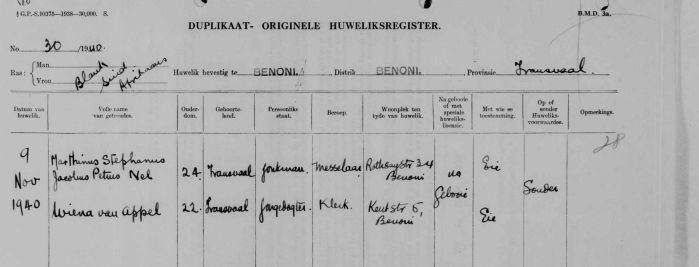 § G.P.-S.10375—1938—30,000. S.
B.M.D. 3a.
DUPLIKAAT- ORIGINELE HUWELIKSREGISTER.
No. 30 /1940.
Ras: Man Vrou Blank Suid Afrikaans Huwelik bevestig te BENONI. , Distrik BENONI. , Provinsie Transvaal.
Datum van huwelik. Volle name van getroudes. Ouder- dom. Geboorte- land. Persoonlike staat. Beroep. Woonplek ten tyde van huwelik. Na gebooie of met spesiale huweliks- lisensie. Met wie se toestemming. Op of sonder Huweliks- voorwaardes. Opmerkings.
28
9 Nov 1940
Marthinus Stephanus
Jacobus Petrus Nel 24. Transvaal Jonkman. Messelaar Rothsaystr 34 Benoni Na Gebooie Eie Sonder
Wiena van Appel 22. Transvaal Jongedogter. Klerk. Kentstr 5, Benoni Eie